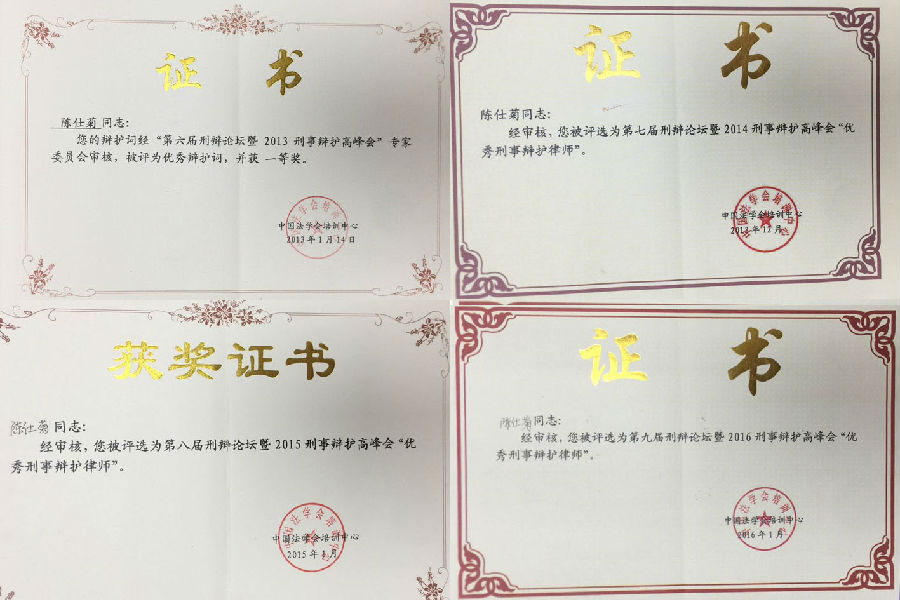 证 书
陈仕菊同志:
您的辩护词经“第六届刑辩论坛暨 2013 刑事辩护高峰会”专家
委员会审核, 被评为优秀辩护词, 并获 一等奖。
中国法学会培训中心
2013 年 1 月 14 日
证 书
陈仕菊同志:
经审核, 您被评选为第七届刑辩论坛暨 2014 刑事辩护高峰会“优
秀刑事辩护律师”。
中国法学会培训中心
年 月
获奖证书
陈仕菊同志:
经审核, 您被评选为第八届刑辩论坛暨 2015 刑事辩护高峰会“优
秀刑事辩护律师”。
中国法学会培训中心
2015 年 月
证 书
陈仕菊同志:
经审核, 您被评选为第九届刑辩论坛暨 2016 刑事辩护高峰会“优
秀刑事辩护律师”。
中国法学会培训中心
2016 年 1 月